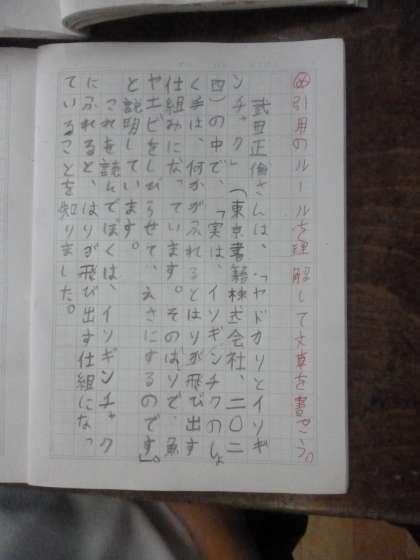 め引用のルールを理解して文章を書こう。
武田正倫さんは、「ヤドカリとイソギ
ンチャク」（東京書籍株式会社、二〇二
四）の中で、「実は、イソギンチクのしょ
く手は、何かがふれるとはりが飛び出す
仕組みになっています。そのはりで、魚
やエビをしびらせて、えさにするのです。」
と説明しています。
これを読んでぼくは、イソギンチャク
にふれると、はりが飛び出す仕組になっ
ていることを知りました。